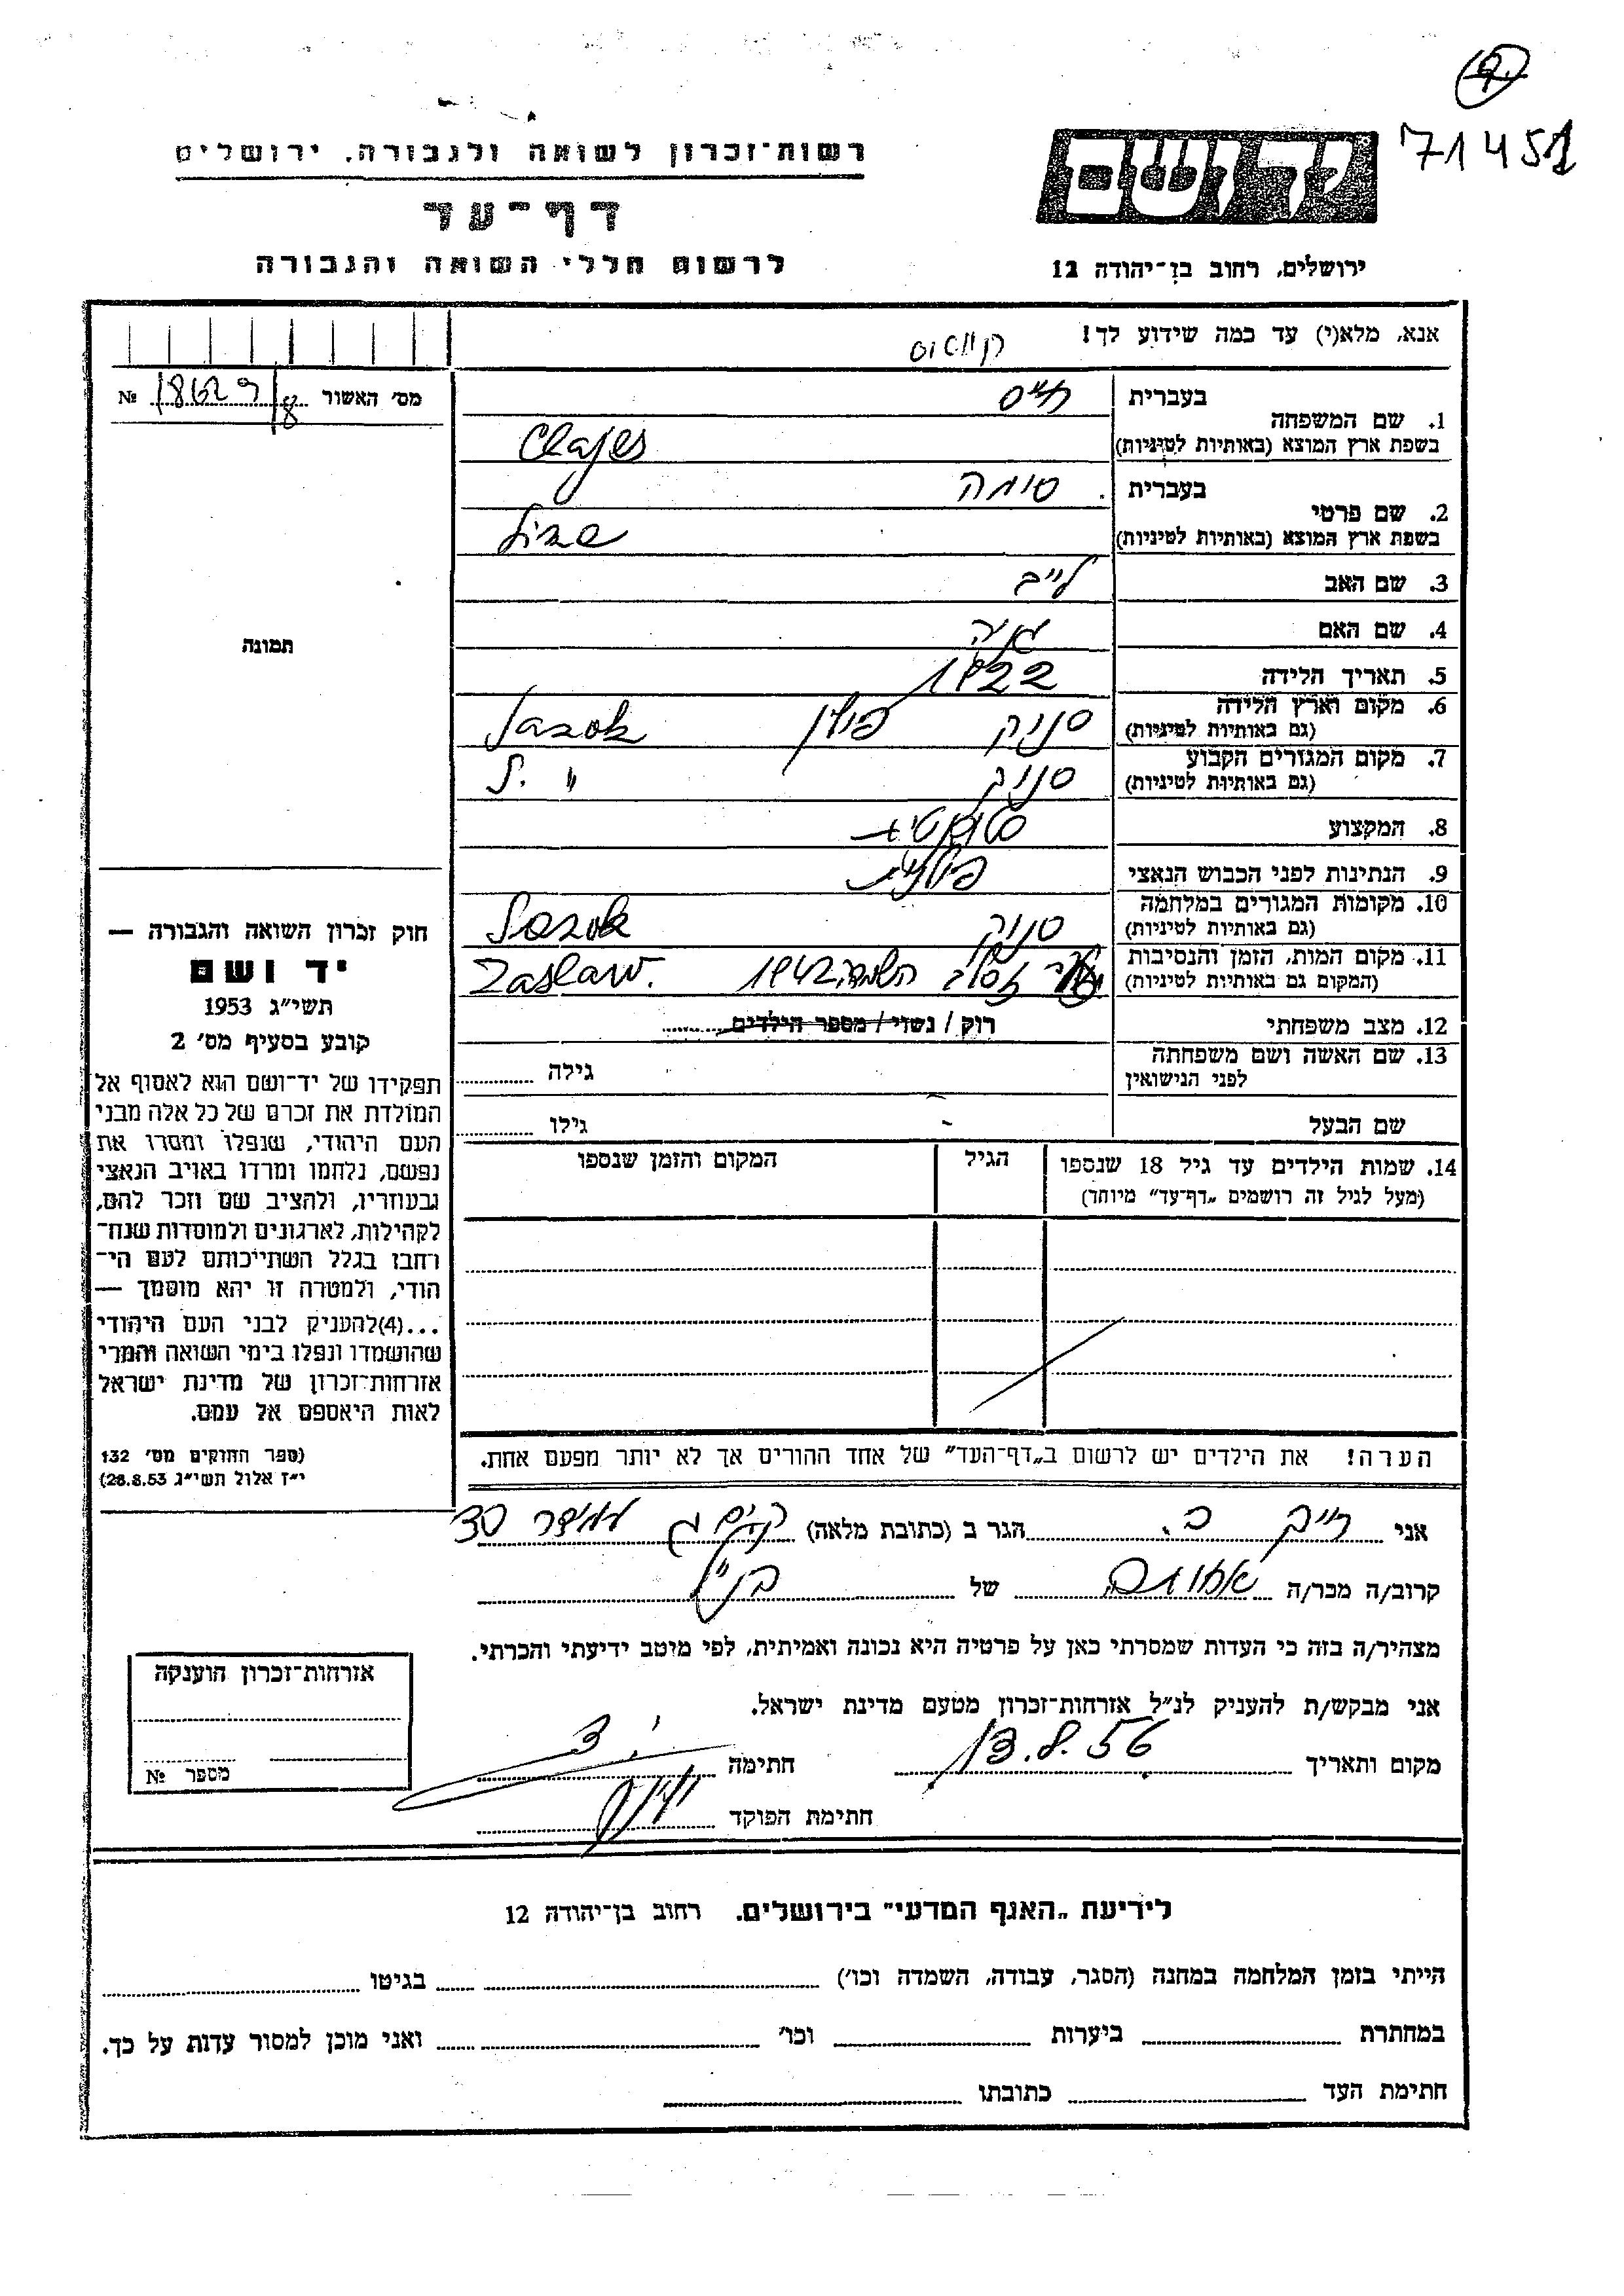 71451
יד ושם
רשות־זכרון לשואה ולגבורה, ירושלים
דף־עד
לרשום חללי השואה והגבורה
ירושלים, רחוב בן־יהודה 12
אנא, מלא(י) עד כמה שידוע לך!
מס׳ האשור № 18629/8
1. שם המשפחה
בעברית
בשפת ארץ המוצא (באותיות לטיניות)
2. שם פרטי
בעברית סימה
בשפת ארץ המוצא (באותיות לטיניות) Sima
3. שם האב לייב
4. שם האם
5. תאריך הלידה 1922
6. מקום וארץ הלידה סנוק פולין Sanok
(גם באותיות לטיניות)
7. מקום המגורים הקבוע סנוק " S.
(גם באותיות לטיניות)
8. המקצוע סטודנטית
9. הנתינות לפני הכבוש הנאצי פולנית
10. מקומות המגורים במלחמה סנוק Sanok
(גם באותיות לטיניות)
11. מקום המות, הזמן והנסיבות זסלב השמדה 1942 Zaslaw.
(המקום גם באותיות לטיניות)
12. מצב משפחתי רוק / נשוי / מספר הילדים
13. שם האשה ושם משפחתה גילה
לפני הנישואין
שם הבעל - גילו
14. שמות הילדים עד גיל 18 שנספו הגיל המקום והזמן שנספו
(מעל לגיל זה רושמים „דף־עד” מיוחד)
הערה! את הילדים יש לרשום ב„דף־העד” של אחד ההורים אך לא יותר מפעם אחת.
תמונה
חוק זכרון השואה והגבורה —
יד ושם
תשי״ג 1953
קובע בסעיף מס׳ 2
תפקידו של יד־ושם הוא לאסוף אל
המולדת את זכרם של כל אלה מבני
העם היהודי, שנפלו ומסרו את
נפשם, נלחמו ומרדו באויב הנאצי
ובעוזריו, ולהציב שם וזכר להם,
לקהילות, לארגונים ולמוסדות שנח־
רבו בגלל השתייכותם לעם הי־
הודי, ולמטרה זו יהא מוסמך —
...(4)להעניק לבני העם היהודי
שהושמדו ונפלו בימי השואה והמרי
אזרחות־זכרון של מדינת ישראל
לאות היאספם אל עמם.
(ספר החוקים מס׳ 132
י״ז אלול תשי״ג 28.8.53)
אני הגר ב (כתובת מלאה)
קרוב/ה מכר/ה של הנ״ל
מצהיר/ה בזה כי העדות שמסרתי כאן על פרטיה היא נכונה ואמיתית, לפי מיטב ידיעתי והכרתי.
אני מבקש/ת להעניק לנ״ל אזרחות־זכרון מטעם מדינת ישראל.
מקום ותאריך 13.8.56 חתימה
חתימת הפוקד
אזרחות־זכרון הוענקה
מספר №
לידיעת „האגף המדעי” בירושלים, רחוב בן־יהודה 12
הייתי בזמן המלחמה במחנה (הסגר, עבודה, השמדה וכו׳) בגיטו
במחתרת ביערות וכו׳ ואני מוכן למסור עדות על כך.
חתימת העד כתובתו